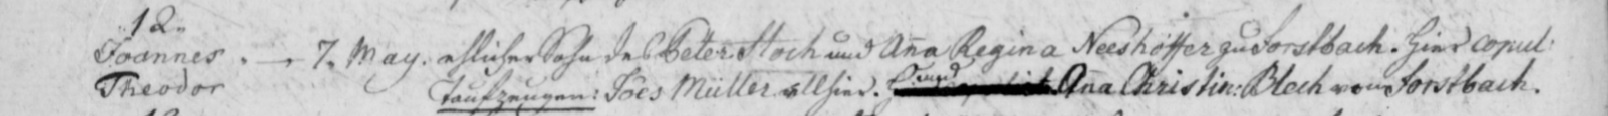 12.
Joannes . — 7. May. ehlicher Sohn des Peter Stoch und Aña Regina Neeshöffer zu Forstbach. Hier copul:
Theodor Taufzeugen: Joes Müller allhier. und Aña Christin: Blech vom Forstbach.